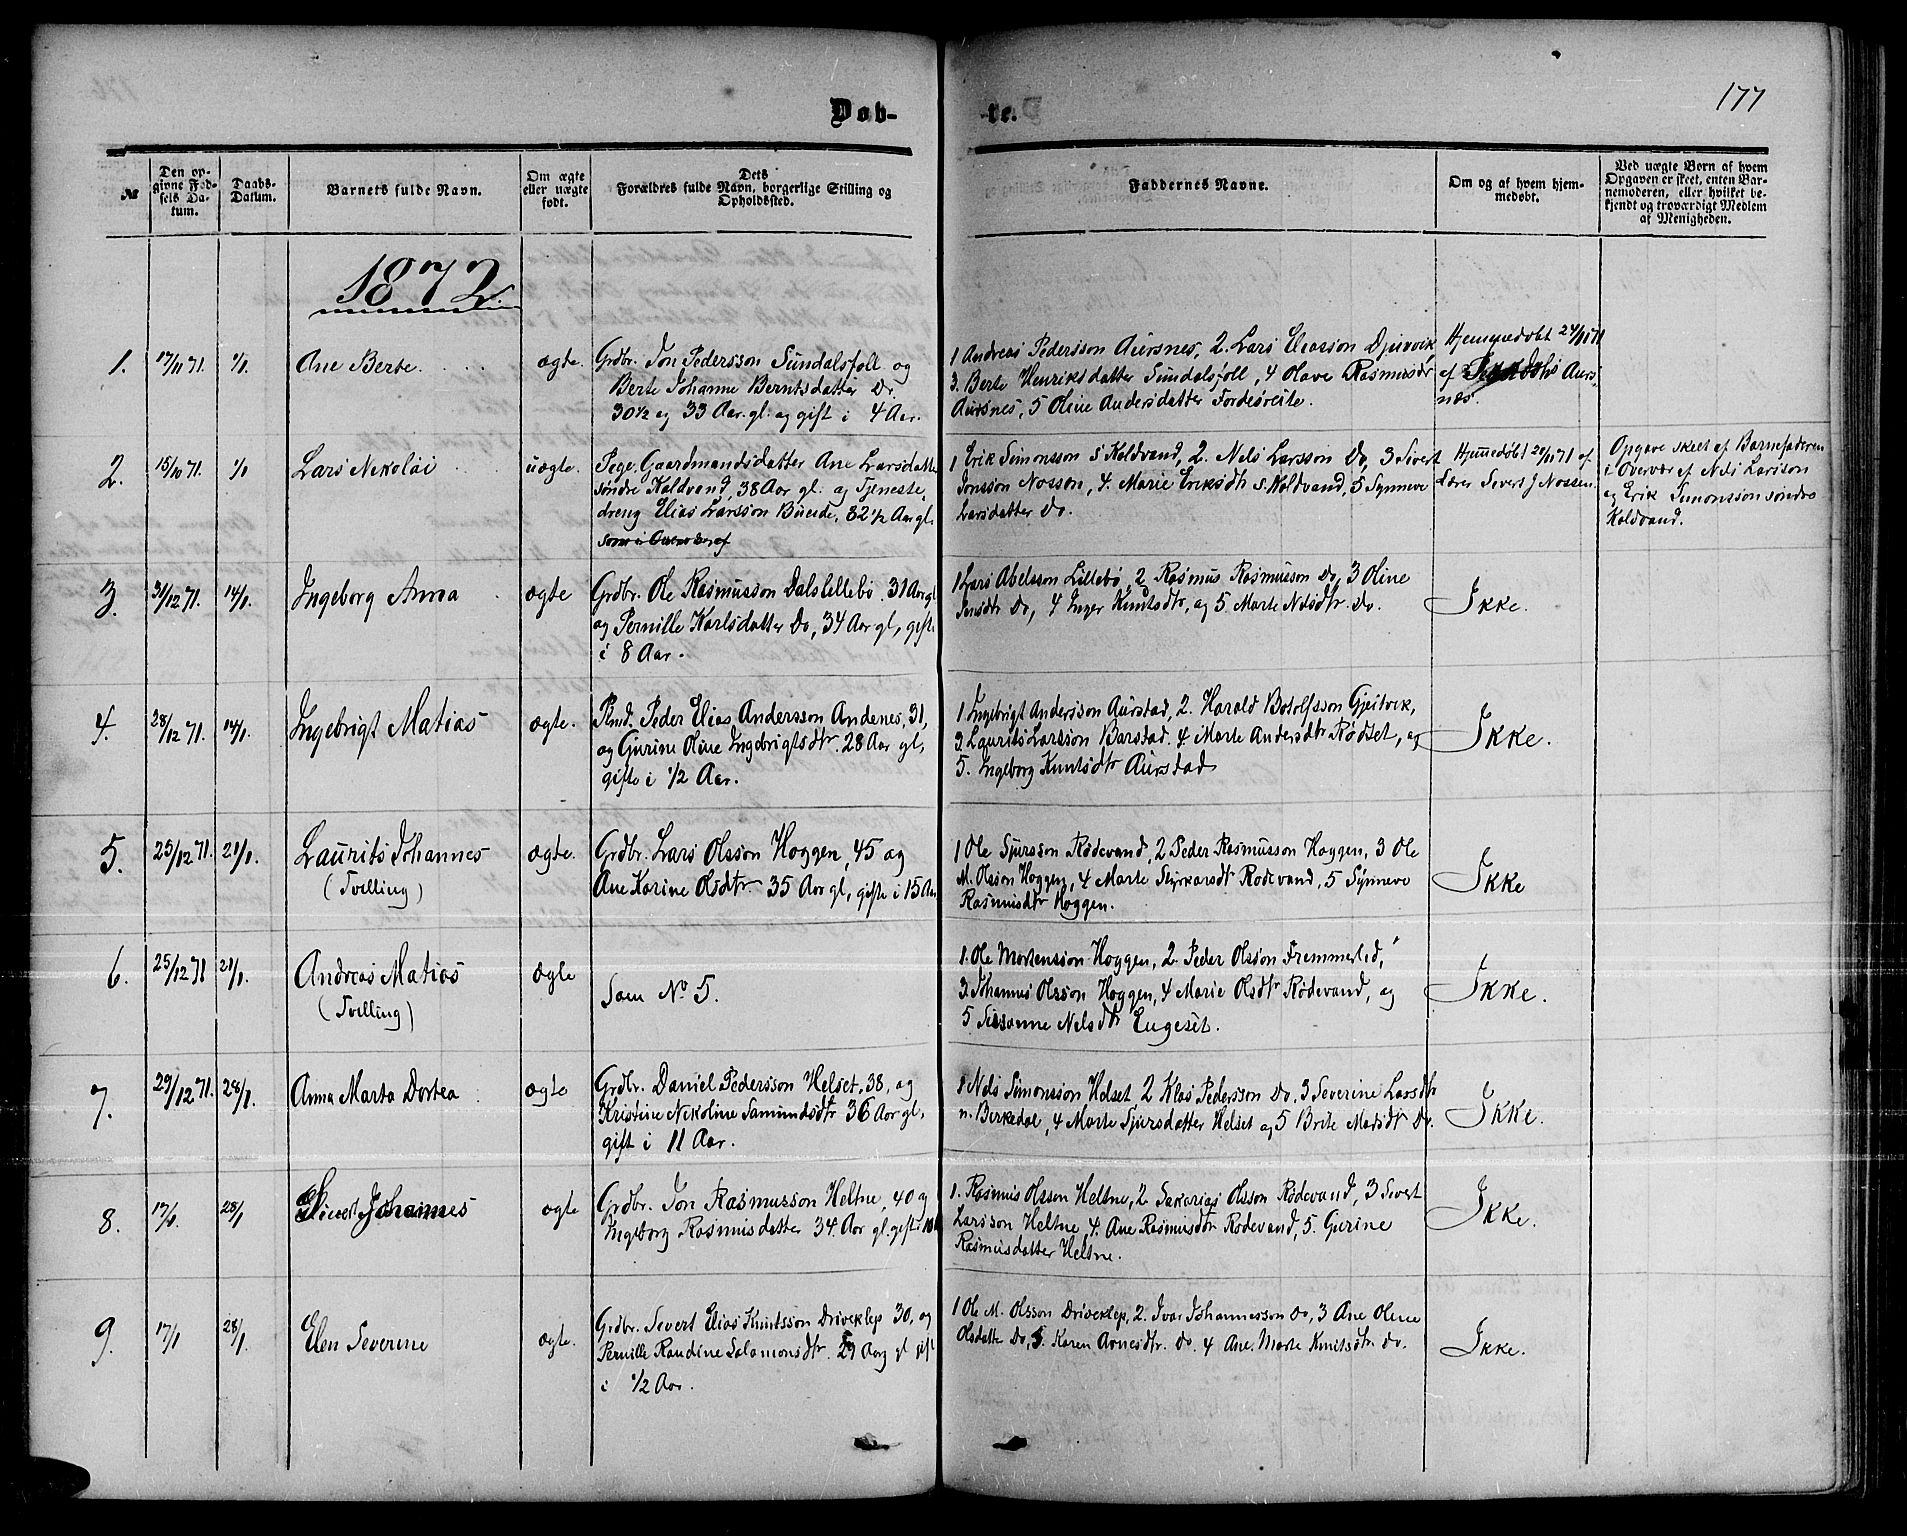 177
Døb-
te.
№
Den op-
givne Fød-
sels Da-
tum.
Daabs-
Datum.
Barnets fulde Navn.
Om ægte
eller uægte
født.
Dets
Forældres fulde Navn, borgerlige Stilling og
Opholdssted.
Faddernes Navne.
Om og af hvem hjem-
medøbt.
Ved uægte Børn af hvem
Opgaven er skeet, enten Bar-
nemoderen, eller hvilket be-
kjendt og troværdigt Medlem
af Menigheden.
1872
1. 17/11 71. 1/1. Ane Berte ægte.
Grdbr. Jon Pedersson Sundalsfoll og
Berte Johanne Berntsdatter Do.
30½ og 33 Aar. gl. og gift i 4 Aar.
1 Andreas Pedersson Aursnes, 2. Lars Eliasson Djuvvik,
3. Berte Henriksdatter Sundalsfoll, 4 Olave Rasmusdtr
Aursnes, 5 Oline Andersdatter Fordesreite.
Hjemmedøbt 24/11 71
af Aurs,
næs.
2. 15/10 71. 1/1 Lars Nikolai uægte.
Pige Gaardmandsdatter Ane Larsdatter
søndre Koldvand, 38 Aar gl. og Tjeneste,
dreng Elias Larsson Bueide, 32½ Aar gl.
1 Erik Simonsson s Koldvand, 2. Nels Larsson Do, 3 Sivert
Jonsson Nossen, 4. Marie Eriksdtr s. Koldvand, 5 Synneve
Larsdatter Do.
Hjemmedøbt 20/11 71 af
Lærer Sivert J Nossen.
Opgave skeet af Barnefaderen
i Overvær af Nils Larsson
og Erik Simonsson søndre
Koldvand.
3. 31/12 71. 14/1. Ingeborg Anna ægte
Grdbr. Ole Rasmusson Dalslillebø 31 Aar gl
og Pernille Karlsdatter Do, 34 Aar gl, gift
i 8 Aar.
1 Lars Abelsson Lillebø, 2 Rasmus Rasmusson Do, 3 Oline
Jensdtr Do, 4 Inger Knutsdtr, og 5 Marte Nelsdtr. Do.
Ikke.
4. 28/12 71. 14/1. Ingebrigt Matias ægte.
Pmd. Peder Elias Andersson Andenes, 31,
og Gurine Oline Ingebrigtsdtr. 28 Aar gl,
gifte i ½ Aar.
1 Ingebrigt Andersson Aurstad, 2. Harald Botolfsson Gjeitvik,
3 Laurits Larsson Barstad. 4. Marte Andersdtr Rødset, og
5. Ingeborg Knutsdtr Aurstad
Ikke.
5. 25/12 71. 21/1. Laurits Johannes ægte.
(Tvilling)
Grdbr. Lars Olsson Hoggen, 45 og
Ane Karine Olsdtr 35 Aar gl, gifte i 15 Aar
1 Ole Sjursson Rødevand, 2 Peder Rasmusson Hoggen, 3 Ole
M. Olsson Hoggen, 4 Marte Styrkarsdtr Rødevand, 5 Synneve
Rasmusdtr Hoggen.
Ikke
6. 25/12 71 21/1. Andreas Matias ægte
(Tvilling)
Som No 5.
1. Ole Mortensson Hoggen, 2. Peder Olsson Fremmerlid,
3. Johannes Olsson Hoggen, 4 Marie Olsdtr Rødevand, og
5 Susanne Nelsdtr Engeset.
Ikke.
7. 29/12 71. 28/1. Anna Marta Dortea ægte
Grdbr. Daniel Pedersson Helset, 38, og
Kristine Nekoline Samundsdtr 36 Aar gl,
gift i 11 Aar.
1 Nels Simonsson Helset 2 Klas Pedersson Do, 3 Severine Larsdtr
n. Birkedal, 4 Marte Sjursdatter Helset og 5 Brite Madsdtr Do.
Ikke.
8. 17/1. 28/1 Sivert Johannes ægte
Grdbr. Jon Rasmusson Heltne, 40 og
Ingeborg Rasmusdatter 34. Aar gl. gift i
1. Rasmus Olssen Heltne, 2 Sakarias Olsson Rødevand, 3 Sivert
Larsson Heltne, 4. Ane Rasmusdtr Rødevand, 5. Gurine
Rasmusdatter Heltne.
Ikke.
9. 17/1 28/1. Elen Severine ægte.
Grdbr. Severt Elias Knutsson Driveklep 30, og
Pernille Raudine Salamonsdtr. 29 Aar gl gift
i ½ Aar.
1 Ole M. Olsson Driveklep, 2. Ivar Johannesson Do, 3 Ane Oline
Olsdatter Do, 5. Karen Arnesdtr. Do. 4 Ane Marte Knutsdtr. Do.
Ikke.